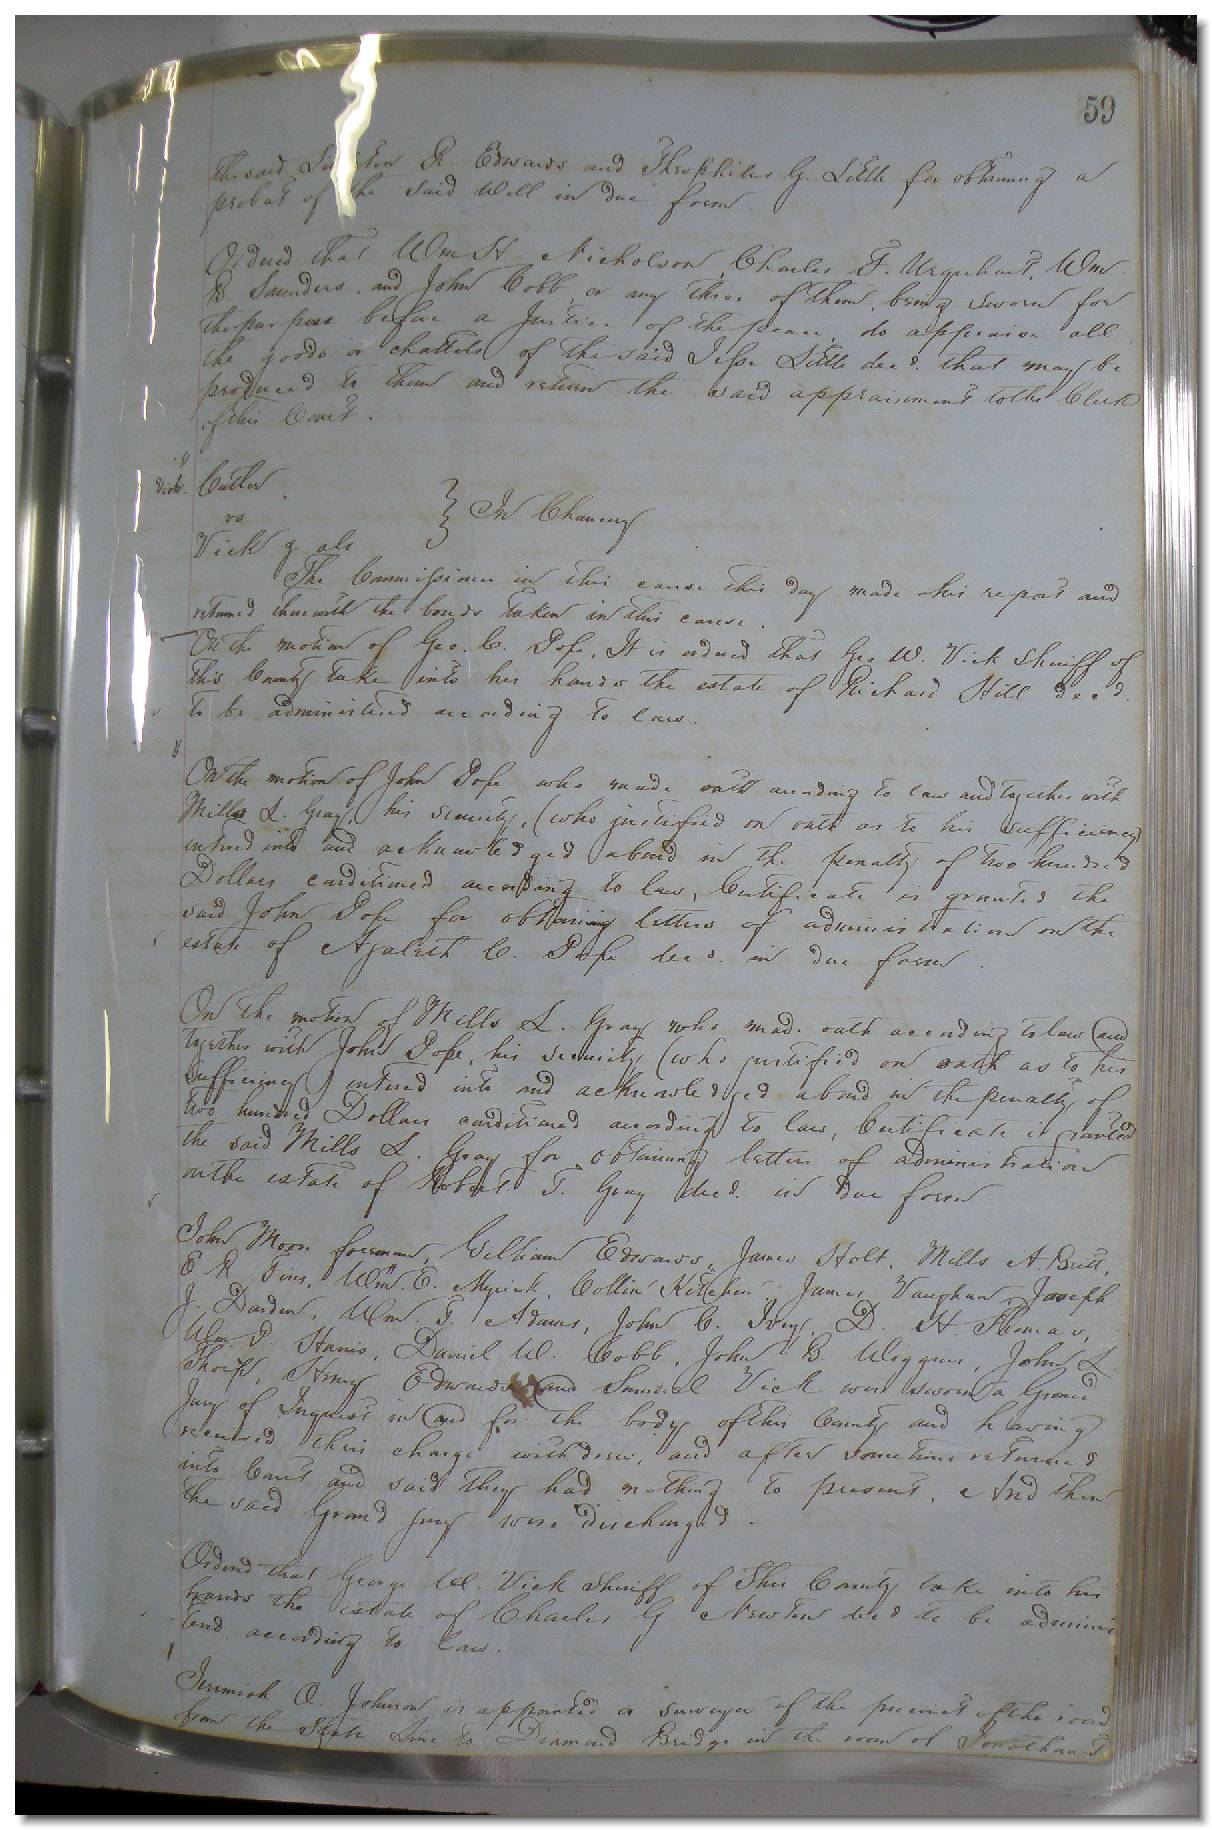 59
the said R. Edwards and Theophilus G. Little for obtaining a
probat of the said Will in due form.
Ordered that Wm H. Nicholson, Charles F. Urquhart, Wm
B. Saunders, and John Cobb, or any three of them, being sworn for
the purpose before a Justice of the peace, do appraise all
the goods or chattels of the said Jesse Little decd. that may be
produced to them and return the said appraisement to the Clerk
of this Court.
Vick. Cutler
vs } In Chancery
Vick & als
The Commissioner in this cause this day made his report and
returned therewith the bonds taken in this cause.
On the motion of Geo. C. Pope, It is ordered that Geo W. Vick Sheriff of
this County take into his hands the estate of Richard Hill decd.
to be administered according to law.
On the motion of John Pope who made oath according to law and together with
Mills L. Gray, his security, (who justified on oath as to his sufficiency)
entered into and acknowledged a bond in the penalty of two hundred
Dollars conditioned according to law, Certificate is granted the
said John Pope for obtaining letters of administration on the
estate of C. Pope decd. in due form.
On the motion of Mills L. Gray who made oath according to law and
together with John Pope, his security (who justified on oath as to his
sufficiency) entered into and acknowledged a bond in the penalty of
two hundred Dollars conditioned according to law, Certificate is granted
the said Mills L. Gray for obtaining letters of administration
on the estate of Robert T. Gray decd. in due form
John Moon foreman, Gilliam Edwards, James Holt, Mills A. Britt,
E R Wm. E. Myrick, Collin Kitchen, James Vaughan, Joseph
J. Darden, Wm. T. Adams, John C. Ivey, D. H. Thomas,
Wm P. Harris, Daniel W. Cobb, John B. Wiggins, John L
Thorp, Henry Edwards and Samuel Vick were sworn a Grand
Jury of Inquest in and for the body of this County and having
received their charge withdrew, and after sometime returned
into Court and said they had nothing to present. And then
the said Grand jury were discharged.
Ordered that George W. Vick Sheriff of this County take into his
hands the estate of Charles G. Newton decd to be adminis
tered according to law.
Jeremiah O. Johnson is appointed a surveyor of the precinct of the road
from the State Line to Diamond Bridge in the room of Jonathan T